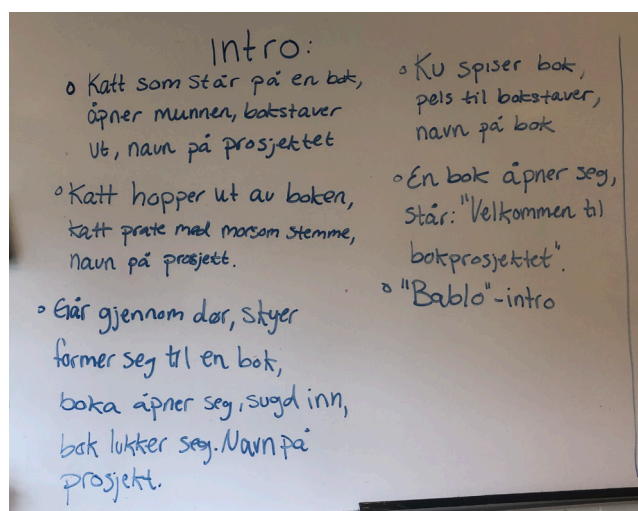 Intro:
• Katt som står på en bok,
åpner munnen, bokstaver
ut, navn på prosjektet
• Katt hopper ut av boken,
katt prate med morsom stemme,
navn på prosjett.
• Går gjennom dør, skyer
former seg til en bok,
boka åpner seg, sugd inn,
bok lukker seg. Navn på
prosjekt.
• Ku spiser bok,
pels til bokstaver,
navn på bok
• En bok åpner seg,
står: "Velkommen til
bokprosjektet".
• "Bablo"-intro